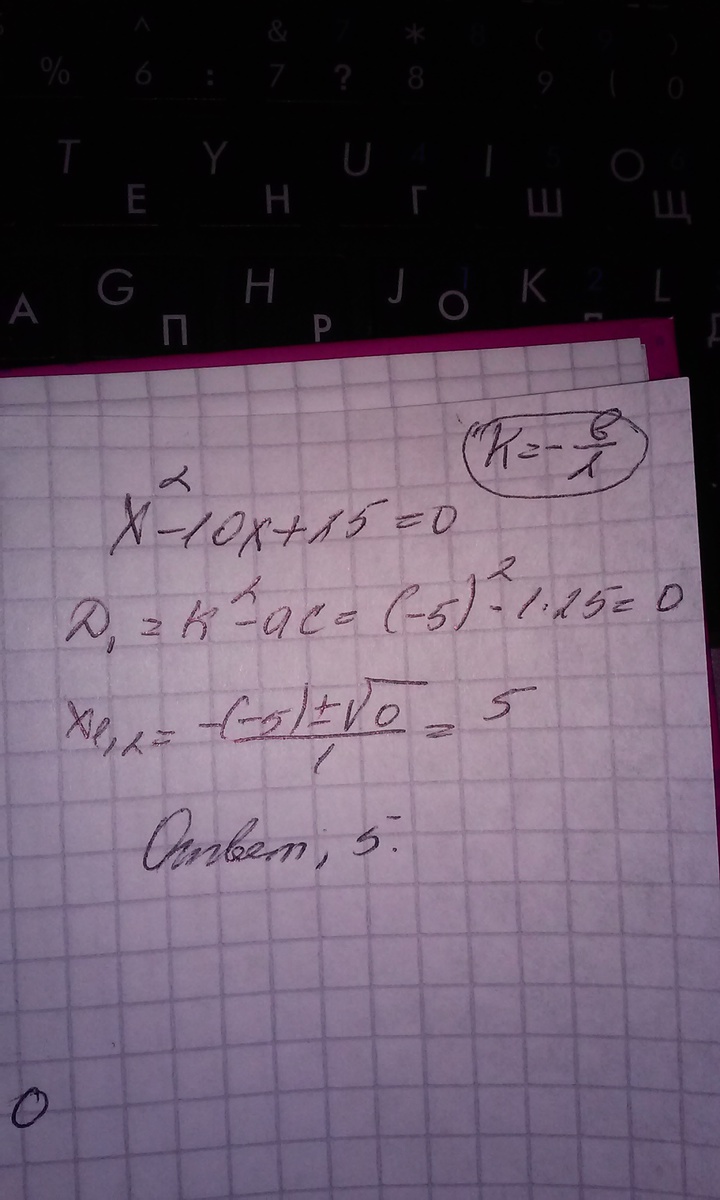 ^ & * ( )
% 6 : 7 ? 8 9 ( 0
T Y U I O
Е Н Г Ш Щ
G H J K 2 L
А П Р О
K = - в/2
x² - 10x + 25 = 0
D₁ = k² - ac = (-5)² - 1·25 = 0
x₁,₂ = -(-5) ± √0 / 1 = 5
Ответ: 5.
0